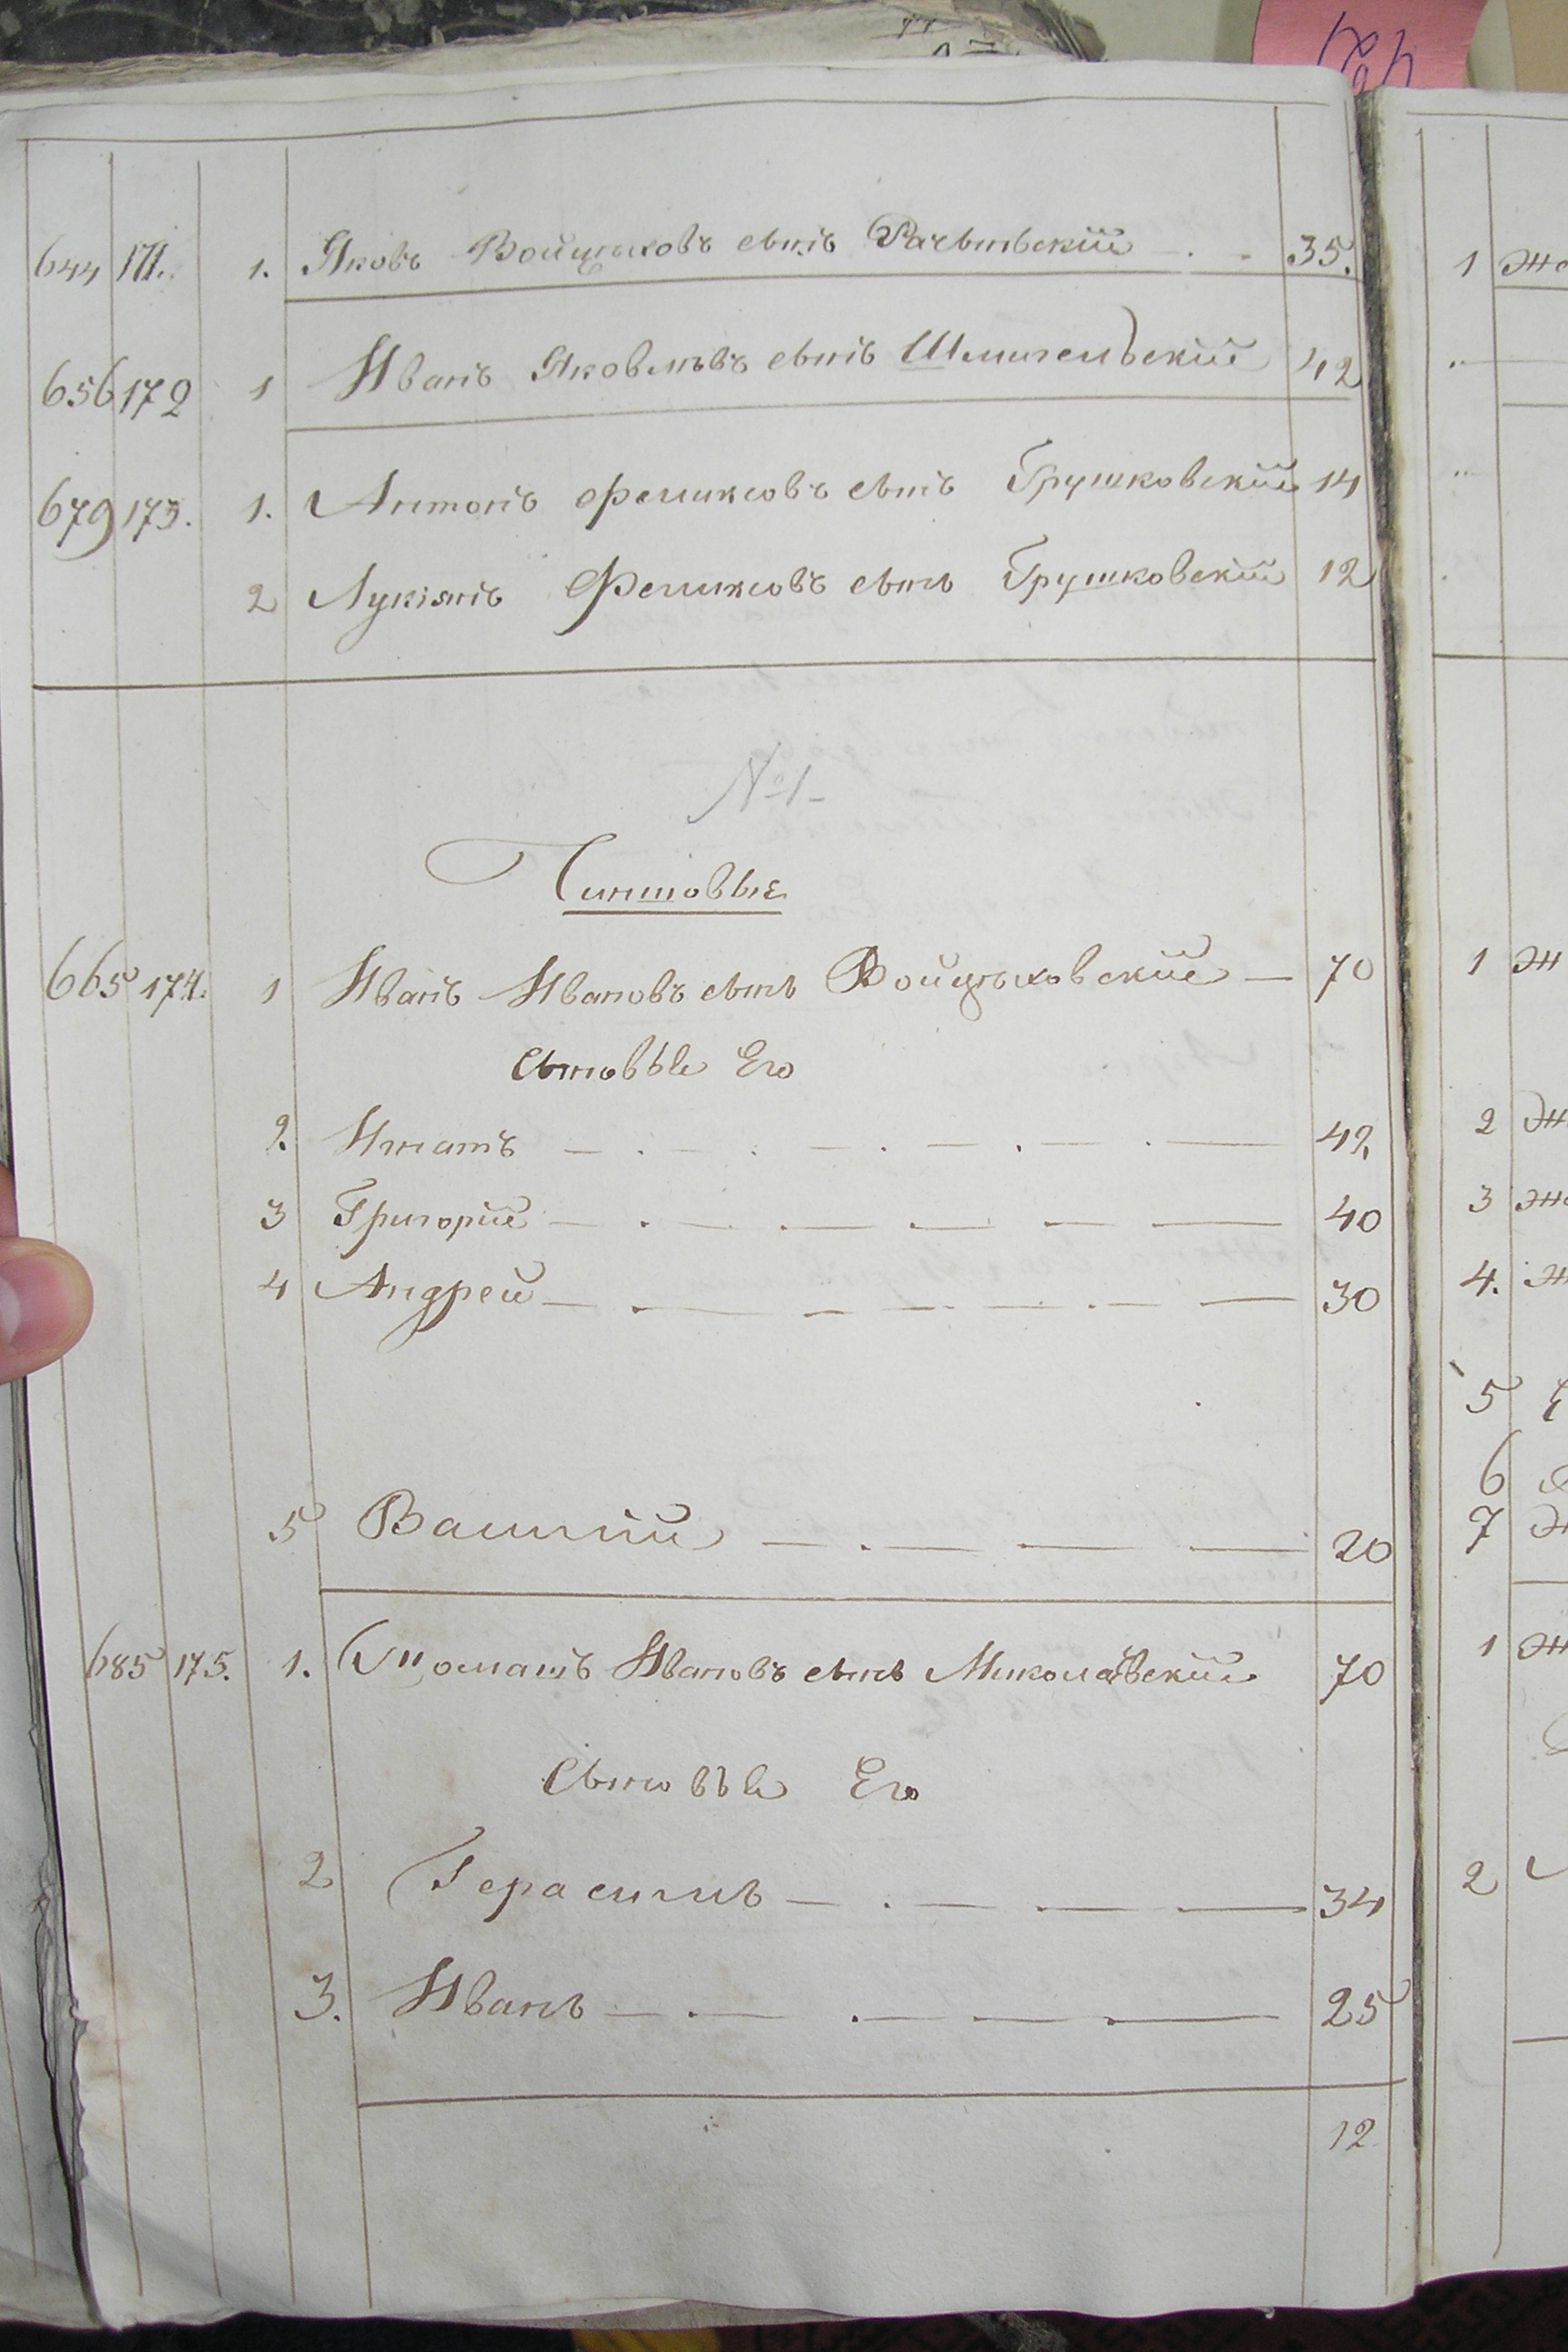 644 171. 1. Яковъ Войцѣховъ сынъ Рачынскій 35.
656 172 1 Иванъ Яковлѣвъ сынъ Шмигельскій 42
679 173. 1. Антонъ Феликсовъ сынъ Грушковскій 14
2 Лукіянъ Феликсовъ сынъ Грушковскій 12
№ 1
Чиншовые
665 174. 1 Иванъ Ивановъ сынъ Войцѣховскій 70
Сыновье Его
2. Игнатъ 42
3 Григорій 40
4 Андрей 30
5 Василій 20
685 175. 1. Томашъ Ивановъ сынъ Миколаевскій 70
Сыновье Его
2 Герасимъ 34
3. Иванъ 25
12
1
1
2
3
4.
5
6
7
1
2